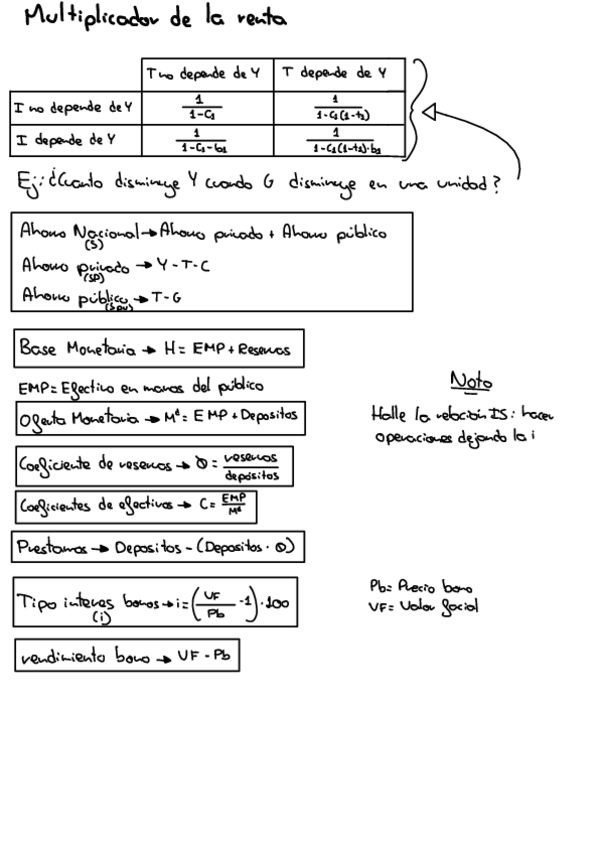 Multiplicador de la renta
T no depende de Y   T depende de Y
I no depende de Y   1/(1-C1)   1/(1-C1(1-t1))
I depende de Y   1/(1-C1-b1)   1/(1-C1(1-t1)-b1)
Ej: ¿Cuanto disminuye Y cuando G disminuye en una unidad?
Ahorro Nacional → Ahorro privado + Ahorro público
(S)
Ahorro privado → Y - T - C
(SP)
Ahorro público → T - G
(SPU)
Base Monetaria → H = EMP + Reservas
EMP = Efectivo en manos del público
Nota
Oferta Monetaria → Mᵈ = EMP + Depositos
Halle la relación IS: hacer
operaciones dejando la i
Coeficiente de reservas → θ = reservas/depósitos
Coeficientes de efectivos → C = EMP/Mᵈ
Prestamos → Depositos - (Depositos · θ)
Tipo interes bonos → i = (VF/Pb - 1) · 100
(i)
Pb = Precio bono
VF = Valor facial
rendimiento bono → VF - Pb